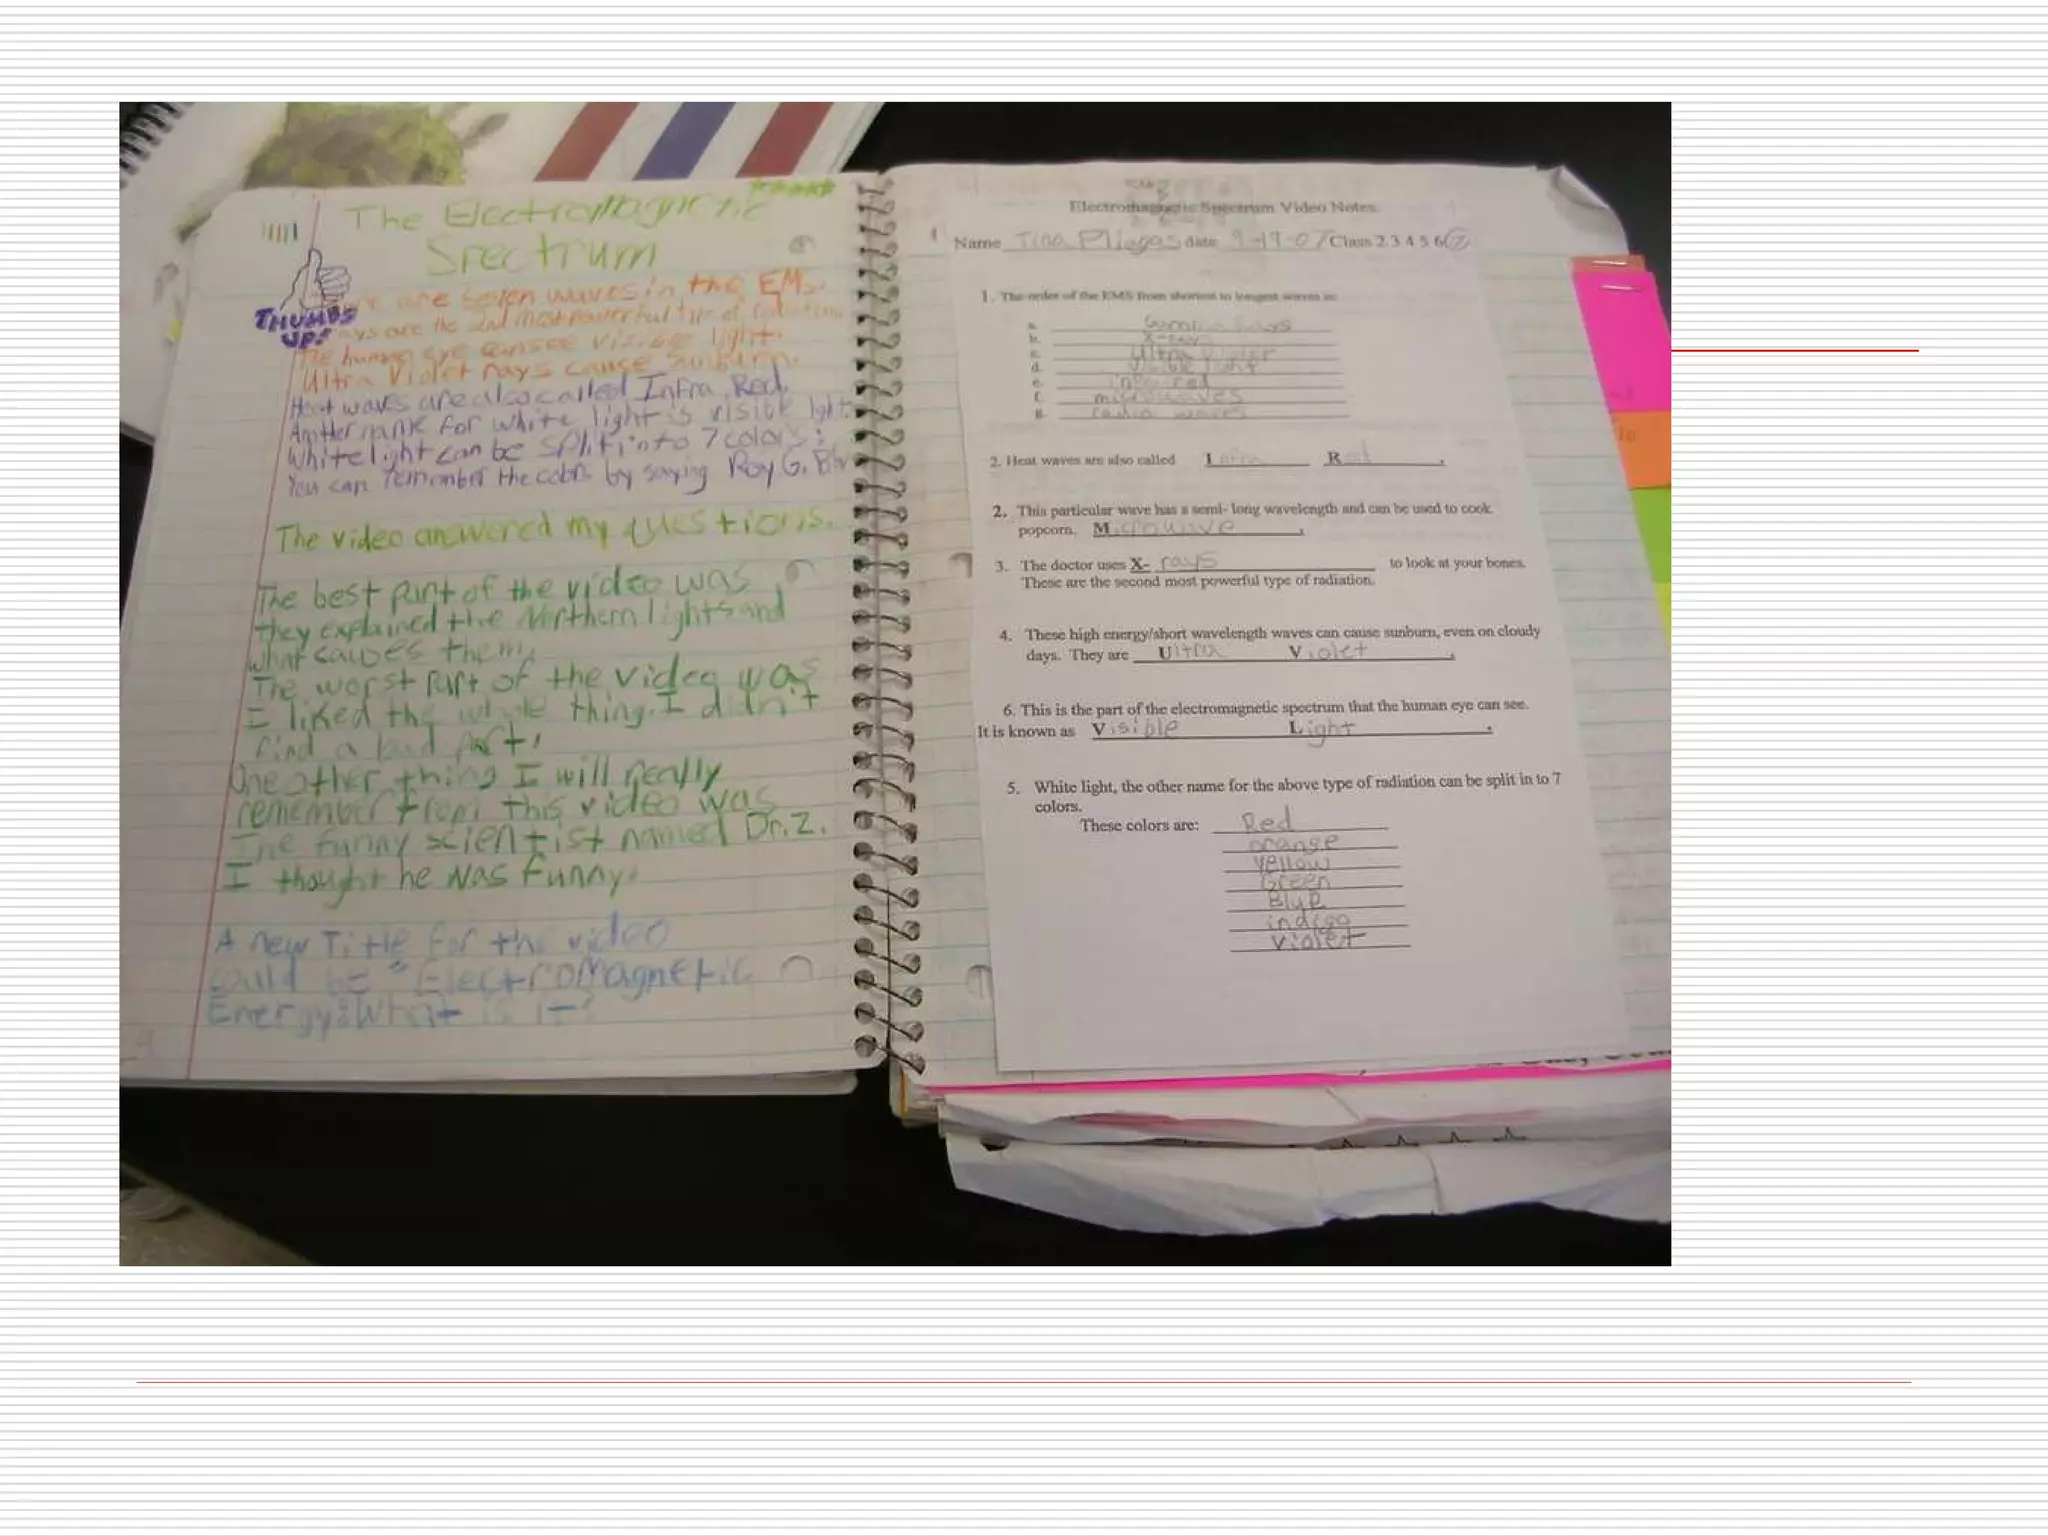 The Electromagnetic
Spectrum
THUMBS
UP!
are seven waves in the EMs.
rays are the 2nd most powerful type of radiation.
The human eye can see visible light.
Ultra Violet rays cause sunburn.
Heat waves are also called Infra Red.
Another name for white light is visible light.
White light can be split into 7 colors:
You can remember the colors by saying Roy G. Biv
The video answered my questions.
The best part of the video was
they explained the Northern lights and
what causes them.
The worst part of the video was
I liked the whole thing. I didn't
find a bad part.
One other thing I will really
remember from this video was
The funny scientist named Dr. Z.
I thought he was funny.
A new Title for the video
could be "Electromagnetic
Energy: What is it?
Electromagnetic Spectrum Video Notes
Name Tina date 9-19-07 Class 2 3 4 5 6 7
1. The order of the EMS from shortest to longest waves is:
a. Gamma Rays
b. X-rays
c. Ultra Violet
d. Visible light
e. infra red
f. microwaves
g. radio waves
2. Heat waves are also called Infra Red.
2. This particular wave has a semi- long wavelength and can be used to cook
popcorn. Microwave.
3. The doctor uses X- rays to look at your bones.
These are the second most powerful type of radiation.
4. These high energy/short wavelength waves can cause sunburn, even on cloudy
days. They are Ultra Violet.
6. This is the part of the electromagnetic spectrum that the human eye can see.
It is known as Visible Light.
5. White light, the other name for the above type of radiation can be split in to 7
colors.
These colors are: Red
orange
yellow
Green
Blue
indigo
violet
To